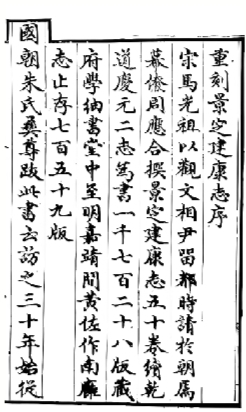 重刻景定建康志序
宋馬光祖以觀文相尹留都時請於朝爲
幕僚周應合撰景定建康志五十卷續乾
道慶元二志爲書一千七百二十八版藏
府學紬書堂中至明嘉靖間黃佐作南廱
志止存七百五十九版
國朝朱氏彝尊跋此書云訪之三十年始從